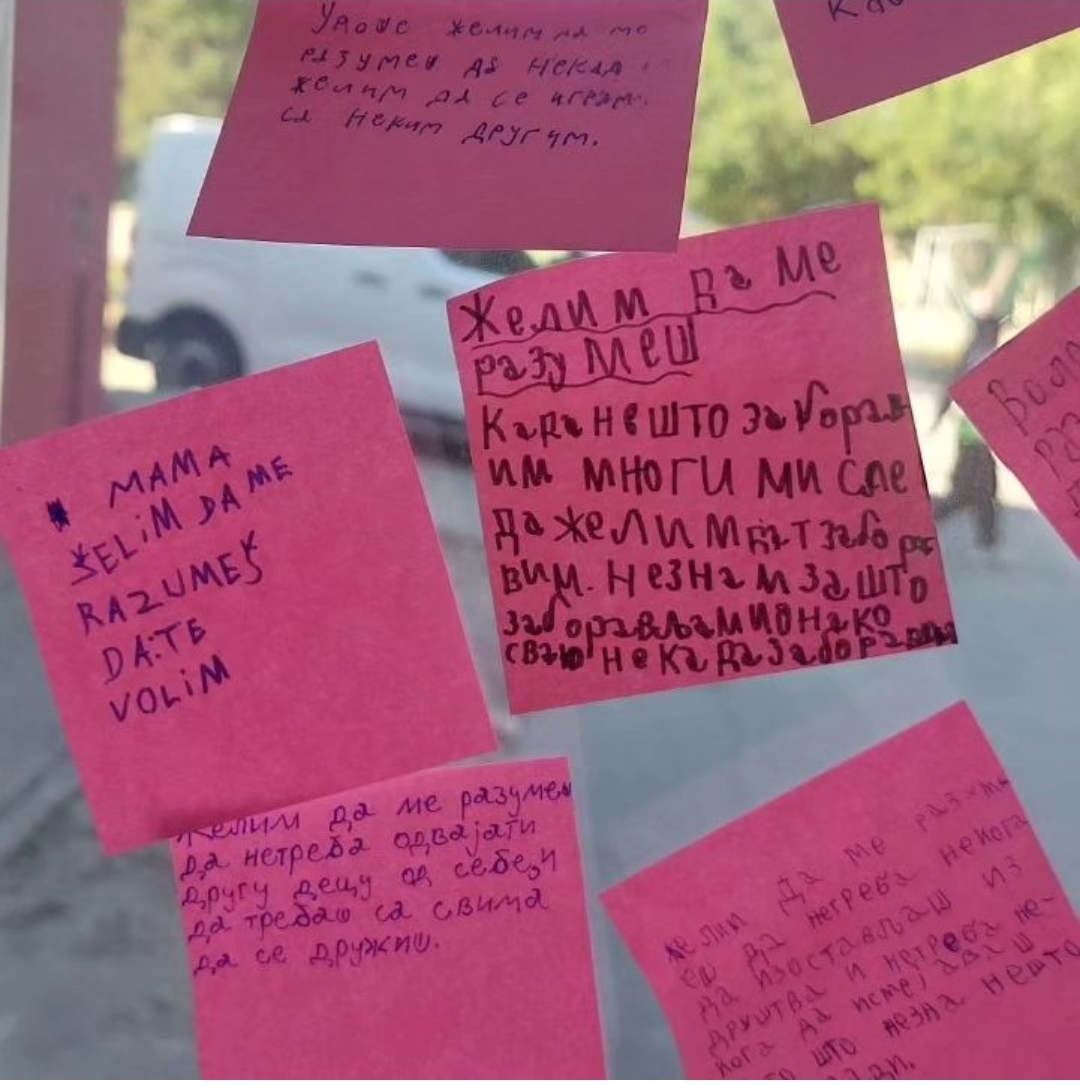 желим да ме
разумеш да некад
желим да се играм
са неким другим.
Желим да ме
разумеш
Када нешто заборав
им многи мисле
да желим да т забора
вим. Незнам зашто
заборављам и онако
свако некада заборави
MAMA
ŽELiM DA ME
RAZUMEŠ
DA TE
VOLiM
Желим да ме разумеш
да нетреба одвајати
другу децу од себе, и
да требаш са свима
да се дружиш.
желим да ме
еш да нетреба некога
да изостављаш из
друштва и нетреба не-
кога да исмејаваш
што незна нешто